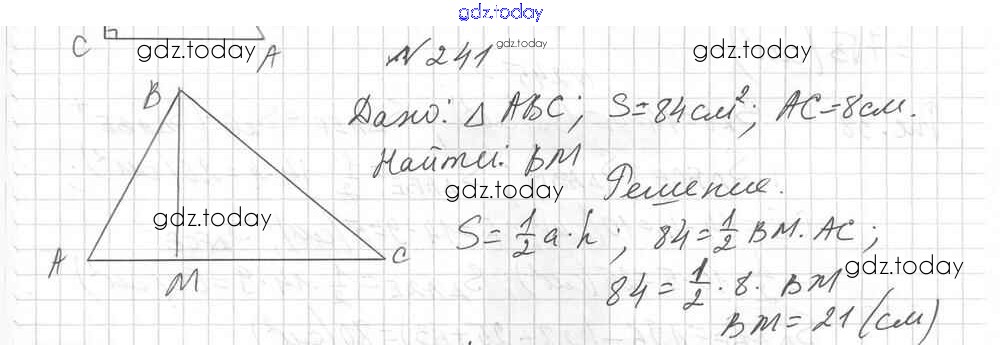 gdz.today
C
A
gdz.today
№ 241
gdz.today
gdz.today
B
Дано: △ ABC; S=84см²; AC=8см.
Найти: BM
gdz.today
Решение.
gdz.today
S = 1/2 a · h; 84 = 1/2 BM · AC;
A
M
C
gdz.today
84 = 1/2 · 8 · BM
BM = 21 (см)